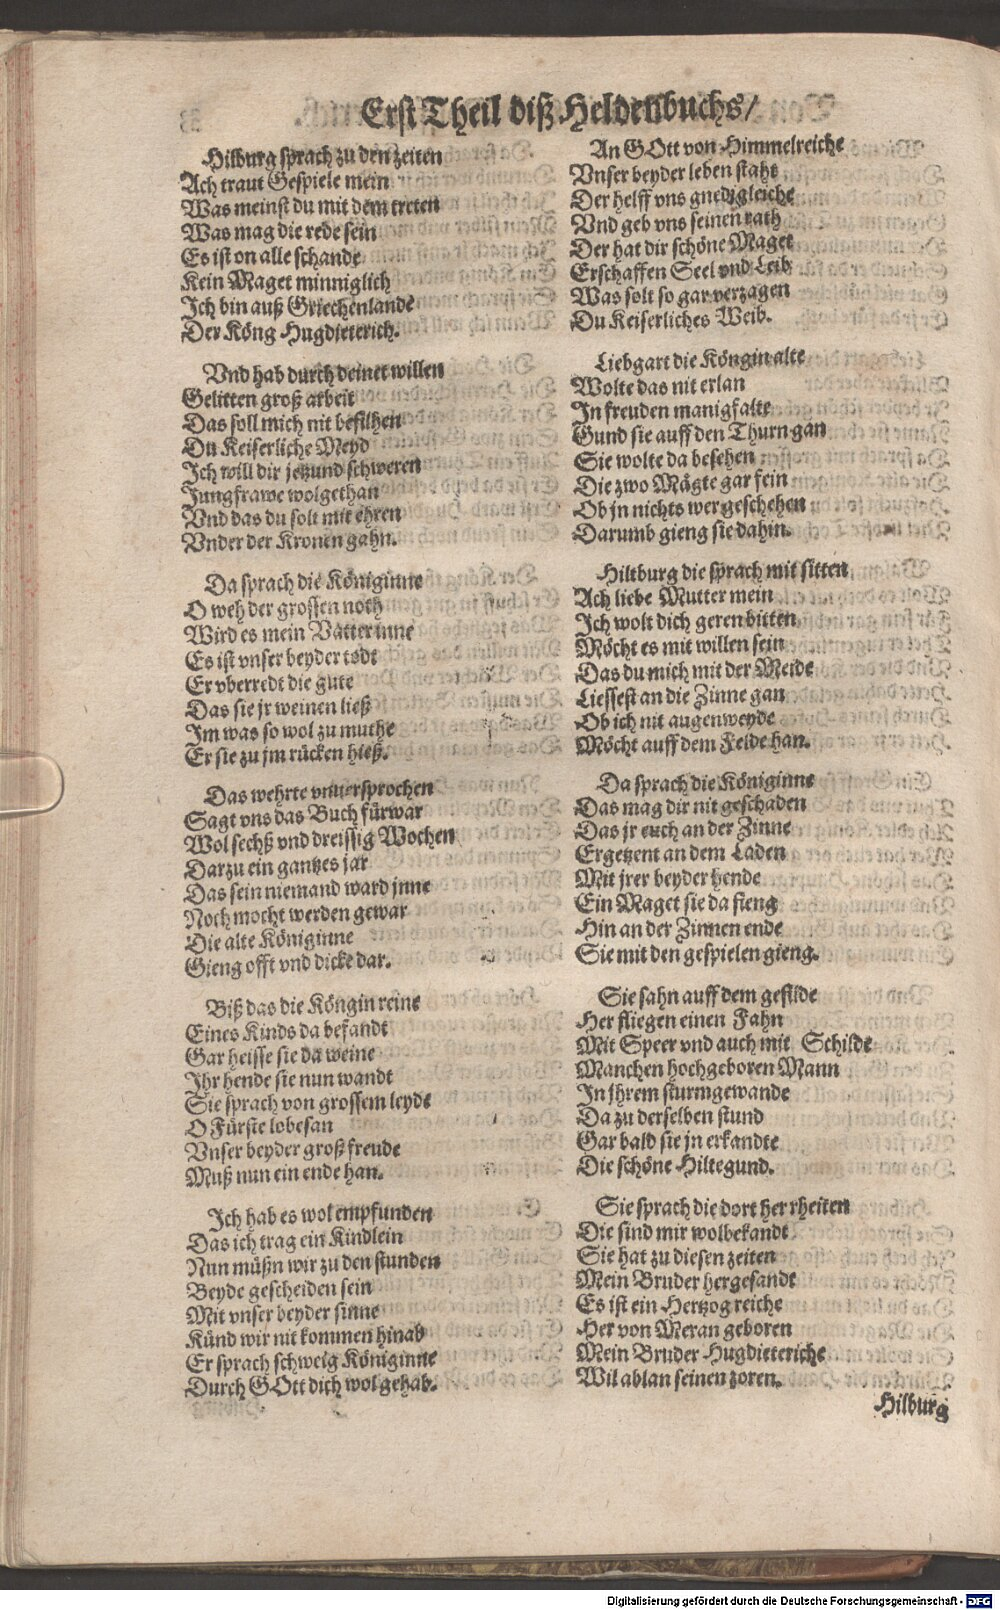 Erst Theil diß Heldenbuchs/
Hilburg sprach zu den zeiten
Ach traut Gespiele mein
Was meinst du mit dem treten
Was mag die rede sein
Es ist on alle schande
Kein Maget minniglich
Ich bin auß Griechenlande
Der Köng Hugdieterich.
Vnd hab durch deinet willen
Gelitten groß arbeit
Das soll mich nit befilhen
Du Keiserliche Meyd
Ich will dir jetzund schweren
Jungfrawe wolgethan
Vnd das du solt mit ehren
Vnder der Kronen gahn.
Da sprach die Königinne
O weh der grossen noth
Wird es mein Vatter inne
Es ist vnser beyder todt
Er vberredt die gute
Das sie jr weinen ließ
Im was so wol zu muthe
Er sie zu jm rücken hieß.
Das wehrte vnuersprochen
Sagt vns das Buch fürwar
Wol sechß vnd dreissig Wochen
Darzu ein gantzes jar
Das sein niemand ward jnne
Noch mocht werden gewar
Die alte Königinne
Gieng offt vnd dicke dar.
Biß das die Köngin reine
Eines Kinds da befandt
Gar heisse sie da weine
Ihr hende sie nun wandt
Sie sprach von grossem leyde
O Fürste lobesan
Vnser beyder groß freude
Muß nun ein ende han.
Ich hab es wol empfunden
Das ich trag ein Kindlein
Nun müßn wir zu den stunden
Beyde gescheiden sein
Mit vnser beyder sinne
Künd wir nit kommen hinab
Er sprach schweig Königinne
Durch GOtt dich wol gehab.
An GOtt von Himmelreiche
Vnser beyder leben staht
Der helff vns gnedigleiche
Vnd geb vns seinen rath
Der hat dir schöne Maget
Erschaffen Seel vnd Leib
Was solt so gar verzagen
Du Keiserliches Weib.
Liebgart die Köngin alte
Wolte das nit erlan
In freuden manigfalte
Gund sie auff den Thurn gan
Sie wolte da besehen
Die zwo Mägte gar fein
Ob jn nichts wer geschehen
Darumb gieng sie dahin.
Hiltburg die sprach mit sitten
Ach liebe Mutter mein
Ich wolt dich geren bitten
Möcht es mit willen sein
Das du mich mit der Meide
Liessest an die Zinne gan
Ob ich nit augenweyde
Möcht auff dem Felde han.
Da sprach die Königinne
Das mag dir nit geschaden
Das jr euch an der Zinne
Ergetzent an dem Laden
Mit jrer beyder hende
Ein Maget sie da fieng
Hin an der Zinnen ende
Sie mit den gespielen gieng.
Sie sahn auff dem gefilde
Her fliegen einen Fahn
Mit Speer vnd auch mit Schilde
Manchen hochgeboren Mann
In jhrem sturmgewande
Da zu derselben stund
Gar bald sie jn erkandte
Die schöne Hiltegund.
Sie sprach die dort her rheiten
Die sind mir wolbekandt
Sie hat zu diesen zeiten
Mein Bruder hergesandt
Es ist ein Hertzog reiche
Her von Meran geboren
Mein Bruder Hugdieteriche
Wil ablan seinen zoren.
Hilburg
Digitalisierung gefördert durch die Deutsche Forschungsgemeinschaft - DFG